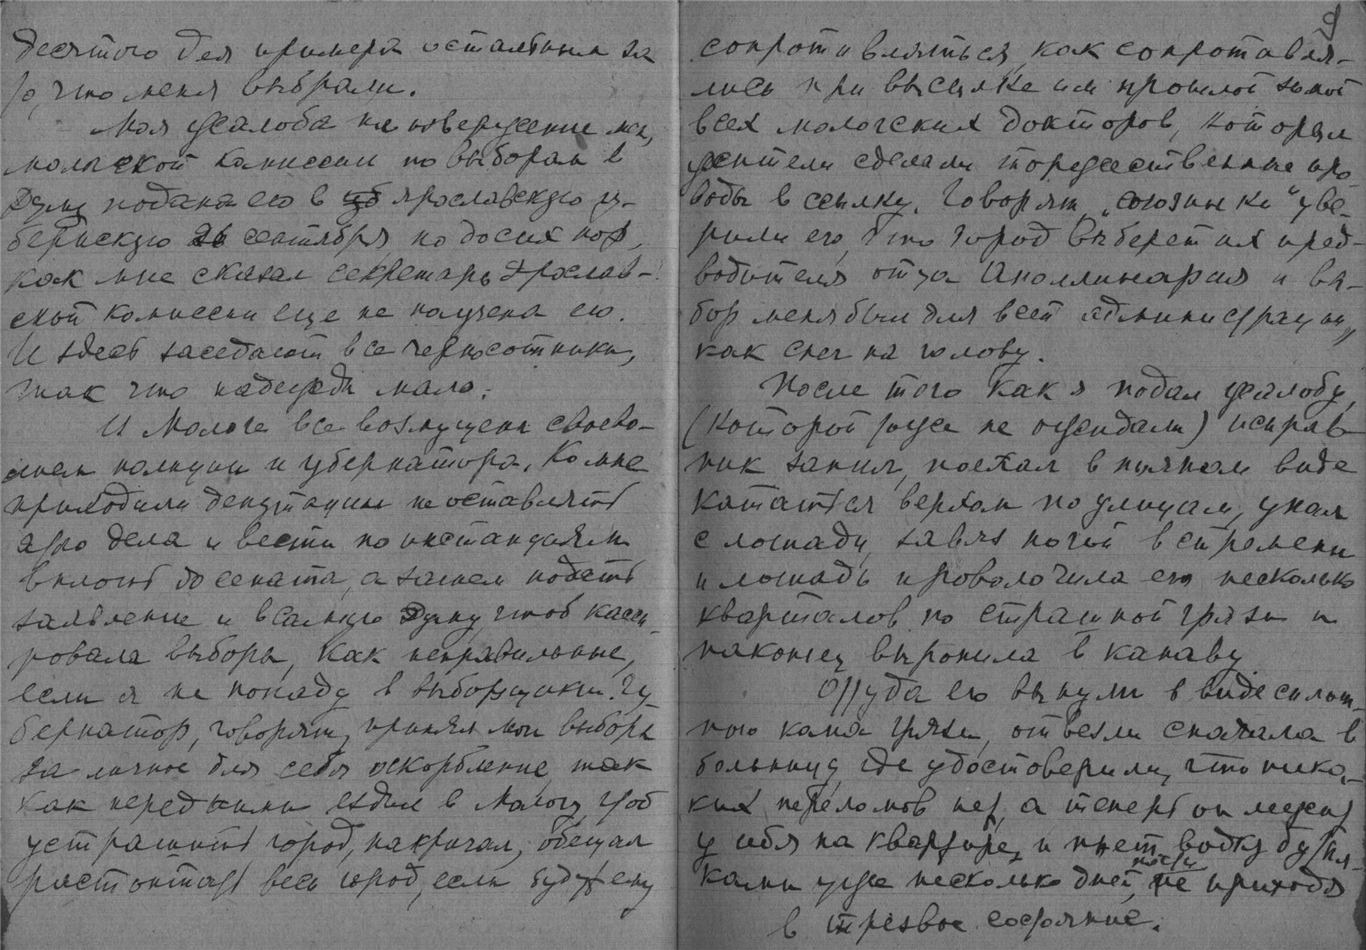 десятого для примера остальным за
то, что меня выбрали.
Моя жалоба на утверждение
мологской комиссии по выборам в
Думу подана ею в Ярославскую гу-
бернскую 26 сентября но до сих пор,
как мне сказал секретарь Ярослав-
ской комиссии еще не получена ею.
И здесь заседают все черносотники,
так что надежды мало.
И Мологе все возмущены своево-
лием полиции и губернатора. Ко мне
приходили депутации не оставлять
этого дела и вести по инстанциям
вплоть до сената, а затем подать
заявление и в самую Думу чтоб касси-
ровала выборы, как неправильные,
если я не попаду в выборщики. Гу
бернатор, говорят, принял мои выборы
за личное для себя оскорбление, так
как перед ними ездил в Мологу, чтоб
устрашить город, накричал, обещал
растоптать весь город, если будут ему
9
сопротивляться, как сопротивля-
лись при высылке им прошлой зимой
всех мологских докторов, которым
жители сделали торжественные про
воды в ссылку. Говорят, „союзники" уве-
рили его, что город выберет их пред-
водителя отца Аполлинария и вы-
бор меня был для всей администрации,
как снег на голову.
После того как я подал жалобу,
(которой тоже не ожидали) исправ-
ник запил, поехал в пьяном виде
кататься верхом по улицам, упал
с лошади, завяз ногой в стремени
и лошадь проволочила его несколько
кварталов по страшной грязи и
наконец выронила в канаву
Оттуда его вынули в виде сплош-
ного кома грязи, отвезли сначала в
больницу, где удостоверили, что ника-
ких переломов нет, а теперь он лежит
у себя на квартире, и пьет водку бутыл-
ками уже несколько дней, почти не приходя
в трезвое состояние.